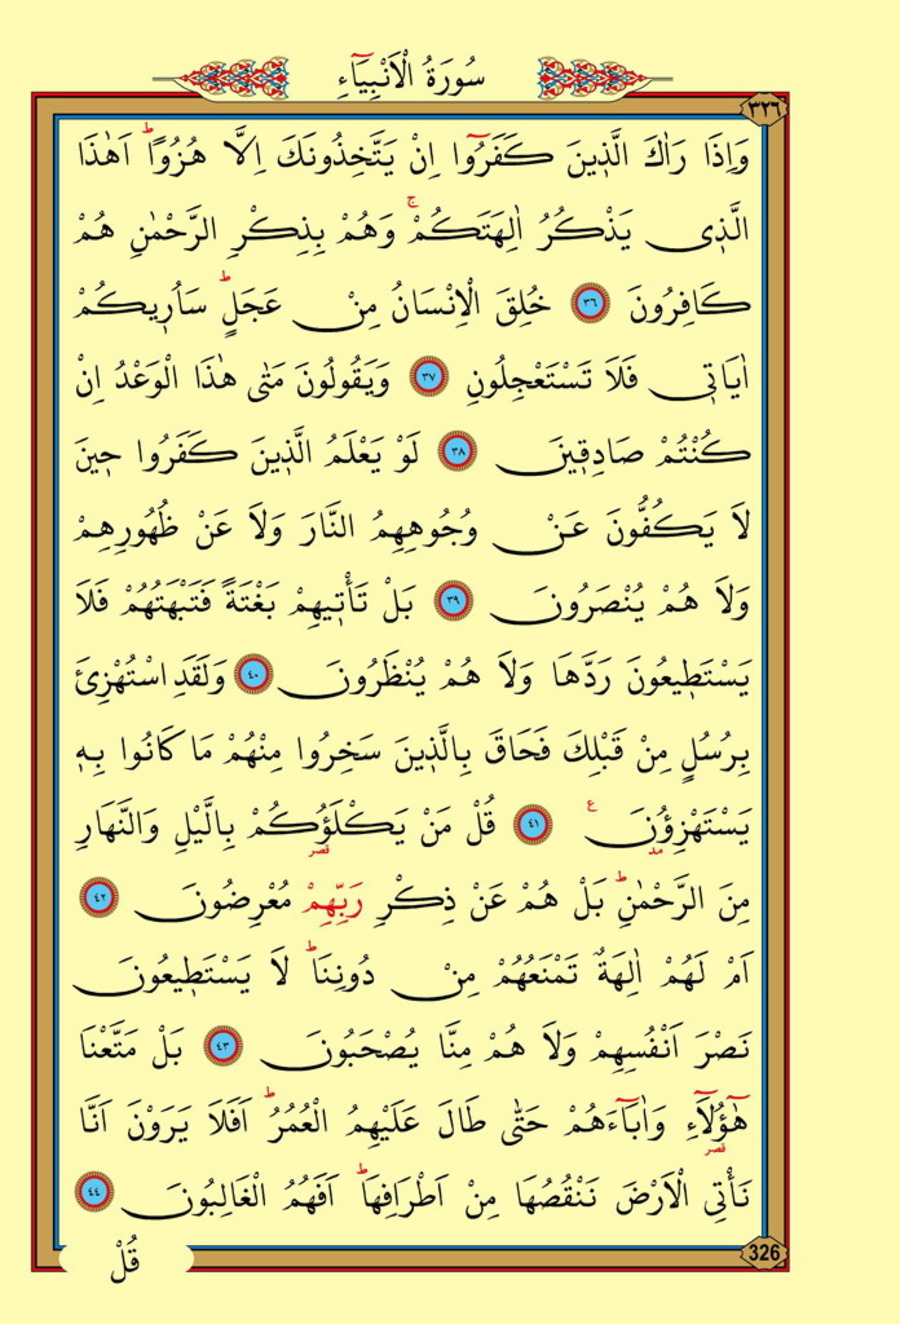 سُورَةُ الْاَنْبِيَٓاءِ
٣٢٦
وَاِذَا رَاٰكَ الَّذ۪ينَ كَفَرُٓوا اِنْ يَتَّخِذُونَكَ اِلَّا هُزُوًاۜ اَهٰذَا
الَّذ۪ي يَذْكُرُ اٰلِهَتَكُمْۚ وَهُمْ بِذِكْرِ الرَّحْمٰنِ هُمْ
كَافِرُونَ ٣٦ خُلِقَ الْاِنْسَانُ مِنْ عَجَلٍۜ سَاُر۪يكُمْ
اٰيَات۪ي فَلَا تَسْتَعْجِلُونِ ٣٧ وَيَقُولُونَ مَتٰى هٰذَا الْوَعْدُ اِنْ
كُنْتُمْ صَادِق۪ينَ ٣٨ لَوْ يَعْلَمُ الَّذ۪ينَ كَفَرُوا ح۪ينَ
لَا يَكُفُّونَ عَنْ وُجُوهِهِمُ النَّارَ وَلَا عَنْ ظُهُورِهِمْ
وَلَا هُمْ يُنْصَرُونَ ٣٩ بَلْ تَأْت۪يهِمْ بَغْتَةً فَتَبْهَتُهُمْ فَلَا
يَسْتَط۪يعُونَ رَدَّهَا وَلَا هُمْ يُنْظَرُونَ ٤٠ وَلَقَدِ اسْتُهْزِئَ
بِرُسُلٍ مِنْ قَبْلِكَ فَحَاقَ بِالَّذ۪ينَ سَخِرُوا مِنْهُمْ مَا كَانُوا بِه۪
يَسْتَهْزِؤُ۫نَ۟ ٤١ قُلْ مَنْ يَكْلَؤُ۬كُمْ بِالَّيْلِ وَالنَّهَارِ
مِنَ الرَّحْمٰنِۜ بَلْ هُمْ عَنْ ذِكْرِ رَبِّهِمْ مُعْرِضُونَ ٤٢
اَمْ لَهُمْ اٰلِهَةٌ تَمْنَعُهُمْ مِنْ دُونِنَاۜ لَا يَسْتَط۪يعُونَ
نَصْرَ اَنْفُسِهِمْ وَلَا هُمْ مِنَّا يُصْحَبُونَ ٤٣ بَلْ مَتَّعْنَا
هٰٓؤُ۬لَٓاءِ وَاٰبَٓاءَهُمْ حَتّٰى طَالَ عَلَيْهِمُ الْعُمُرُۜ اَفَلَا يَرَوْنَ اَنَّا
نَأْتِي الْاَرْضَ نَنْقُصُهَا مِنْ اَطْرَافِهَاۜ اَفَهُمُ الْغَالِبُونَ ٤٤
326
قُلْ